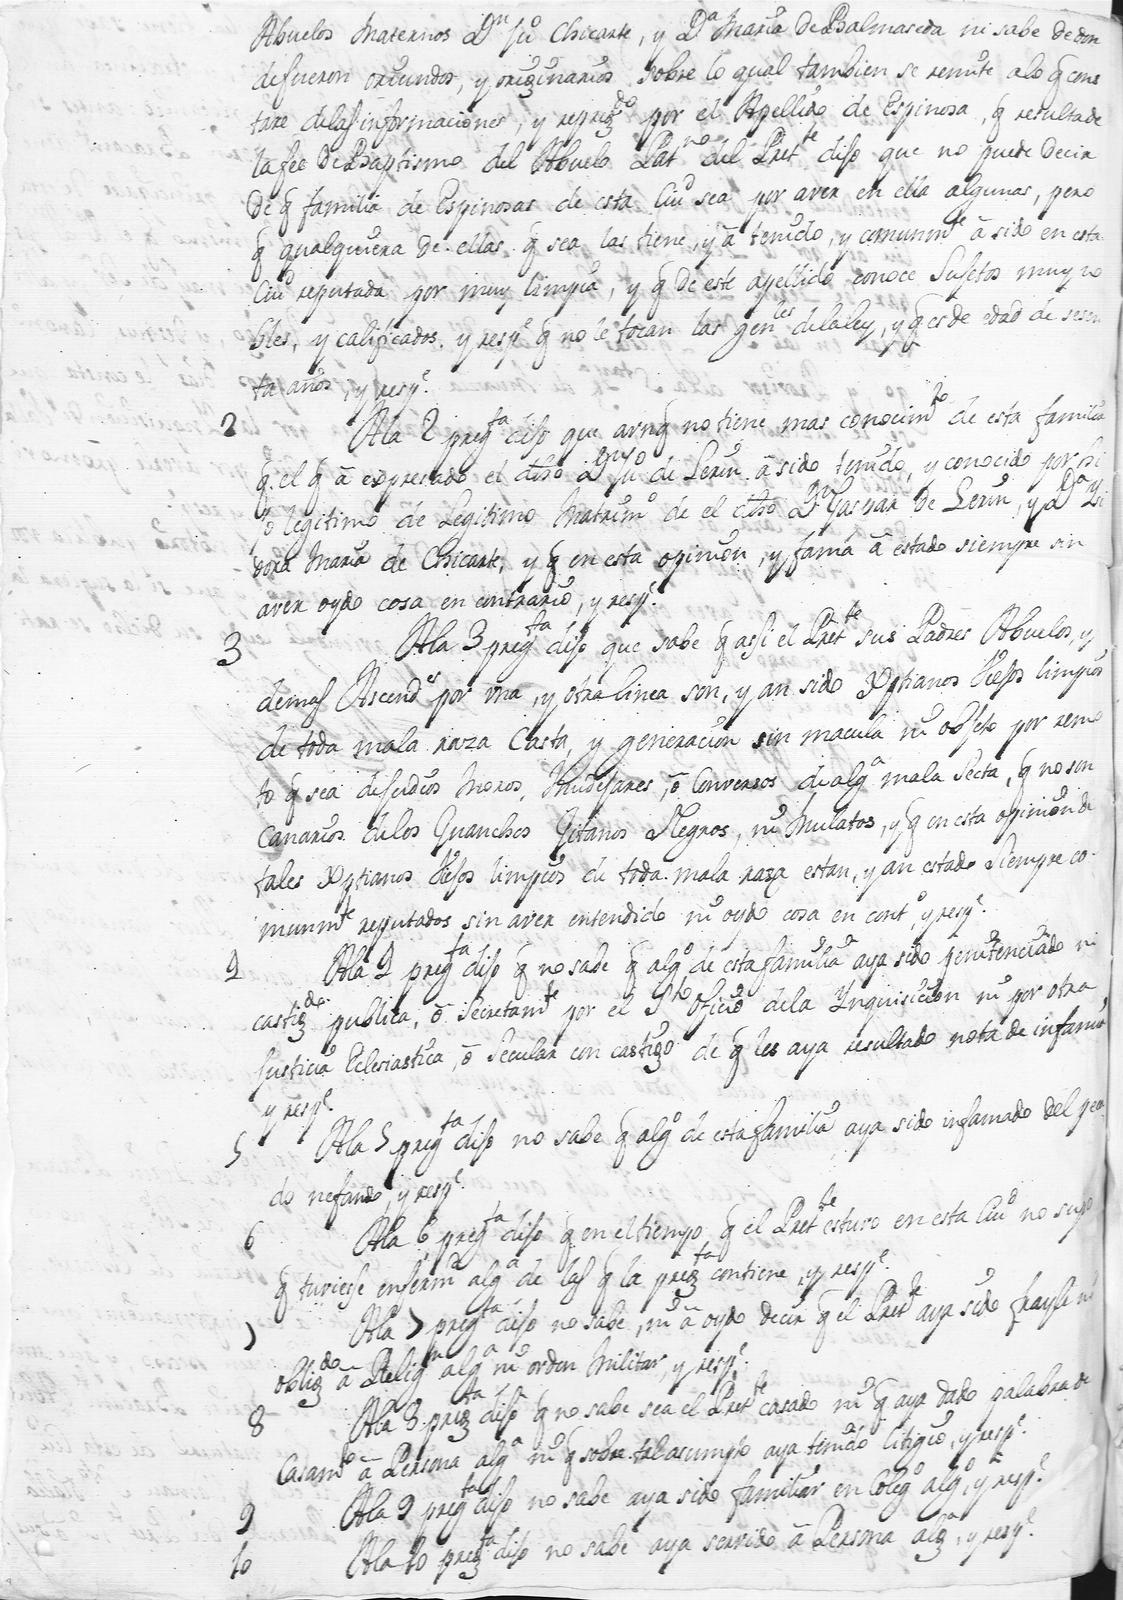 Abuelos Maternos Dn Juo Chicarte, y Da Maria de Balmaseda ni sabe de don
de fueron oriundos, y originarios sobre lo qual tambien se remite alo q cons
tare delas informaciones, y repregdo por el Apellido de Espinosa, q resulta de
la fee de Baptismo del Abuelo Patno del Prette dijo que no puede decir
de q familia de Espinosas de esta Ciud sea por aver en ella algunas, pero
q qualquiera de ellas q sea las tiene, y ā tenido, y comunmte ā sido en esta
Ciud reputada por muy limpia, y q de este apellido conoce Sujetos muy no
bles, y calificados, y respe q no le tocan las genles de la ley, y q es de edad de sesen
ta años, y respe.
2 Ala 2 pregta dijo que aunq no tiene mas conocimto de esta familia
q el q ā expresado el dho Dn Juo de Lerin ā sido tenido, y conocido por hi
jo legitimo de Legitimo Matrimo de el dho Dn Gaspar de Lerin, y Da Isi
dora Maria de Chicarte, y q en esta opinion, y fama ā estado siempre sin
aver oydo cosa en contrario, y respe.
3 Ala 3 pregta dijo que sabe q assi el Prette sus Padres Abuelos, y
demas Ascendes por una, y otra linea son, y an sido Xptianos Viejos limpios
de toda mala raza Casta, y generacion sin macula ni objeto por remo
to q sea de Judios Moros, Mudejares, ō Conversos de alga mala Secta, q no son
Canarios delos Guanches Gitanos Negros, ni Mulatos, y q en esta opinion de
tales Xptianos Viejos limpios de toda mala raza estan, y an estado Siempre co-
munmte reputados sin aver entendido ni oydo cosa en conto, y respe.
4 Ala 4 pregta dijo q no sabe q algo de esta familia aya sido penitenciado ni
castigdo publica, ō Secretamte por el Sto Oficio dela Ynquisicion ni por otra
Justicia Eclesiastica, ō Secular con castigo de q les aya resultado nota de infamia
y respe.
5 Ala 5 pregta dijo no sabe q algo de esta familia aya sido infamado del peca
do nefando, y respe.
6 Ala 6 pregta dijo q en el tiempo q el Prette estuvo en esta Ciud no supo
q tuviese enfermd alga de las q la pregta contiene, y respe.
7 Ala 7 pregta dijo no sabe, ni ā oydo decir q el Prette aya sido frayle ni
obligdo ā Relign alga ni orden Militar, y respe.
8 Ala 8 pregta dijo q no sabe sea el Prette casado ni q aya dado palabra de
Casamto ā Persona alga ni q sobre tal asumpto aya tenido litigio, y respe.
9 Ala 9 pregta dijo no sabe aya sido familiar en Colego algo, y respe.
10 Ala 10 pregta dijo no sabe aya servido ā Persona alga, y respe.